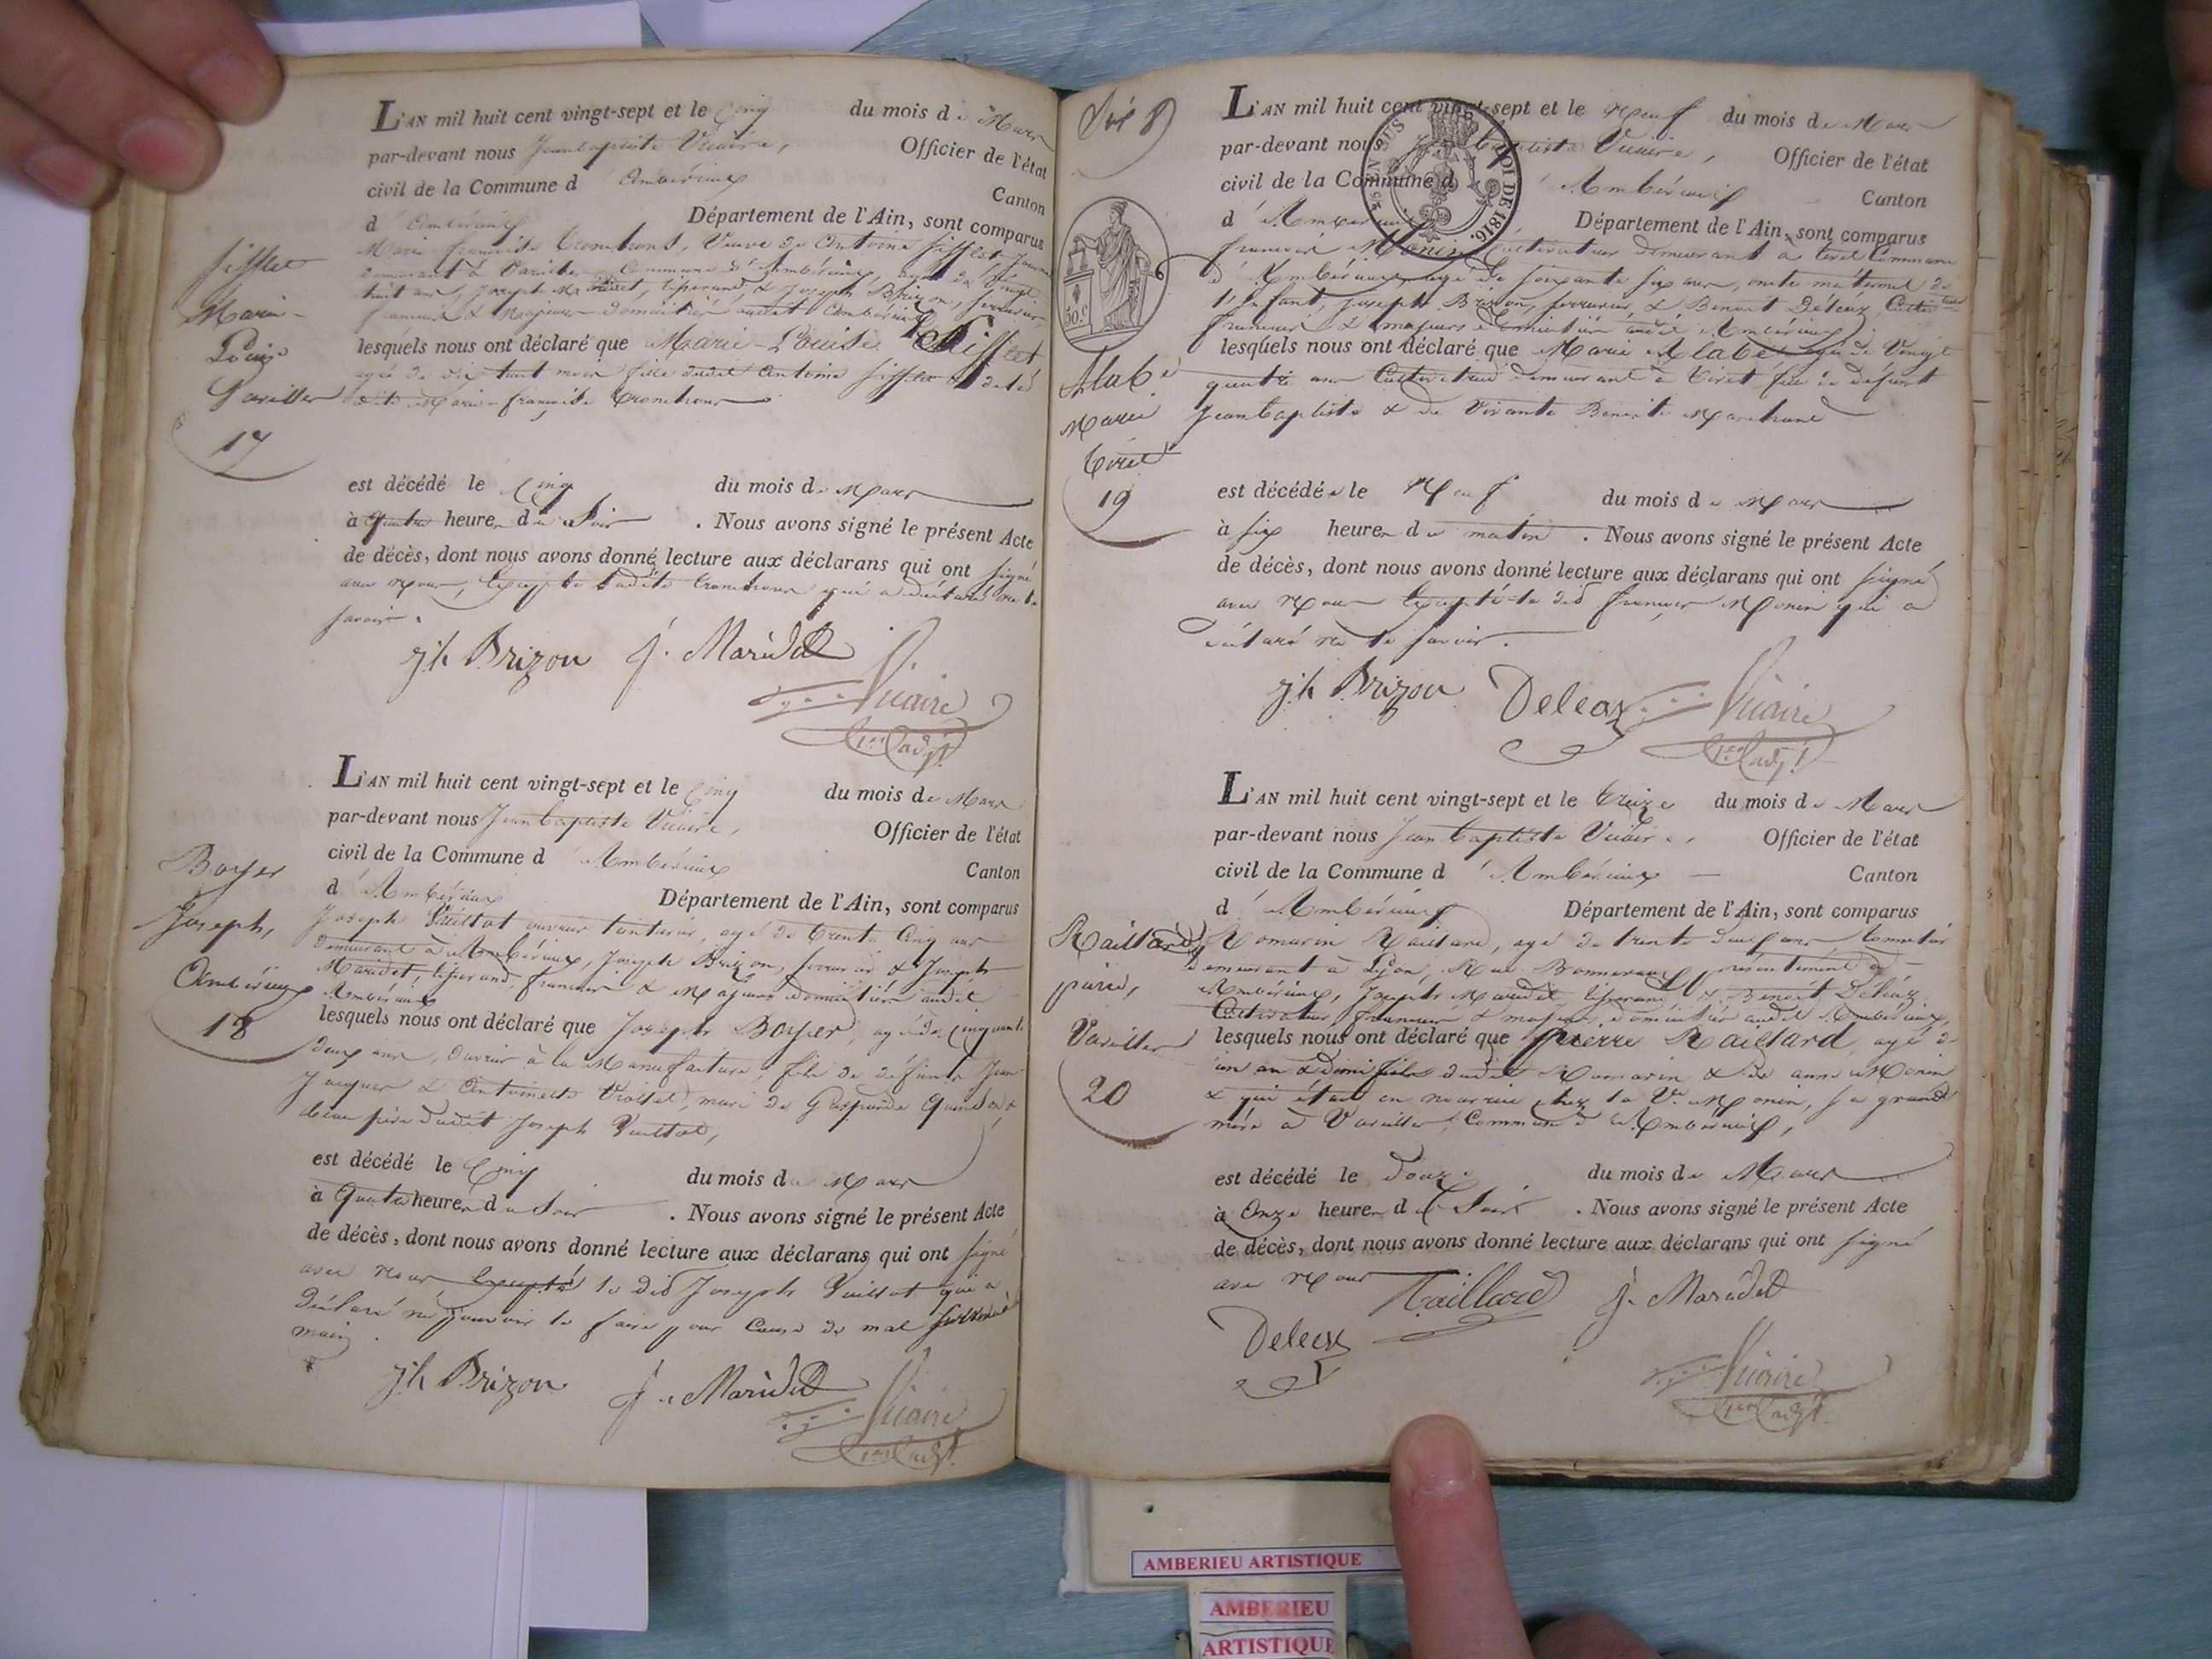 L'AN mil huit cent vingt-sept et le Cinq du mois de Mars
par-devant nous Jean baptiste Vicaire, Officier de l'état
civil de la Commune d'Ambérieux Canton
d'Ambérieux Département de l'Ain, sont comparus
Marie françoise, Veuve de Antoine Sifflet
demeurant à Vareilles Commune d'Ambérieux, agée de Vingt
huit ans, Joseph Maridet, tisserand, & Joseph Brizon, serrurier,
français & majeurs domiciliés audit Ambérieux
lesquels nous ont déclaré que Marie-Louise Sifflet
agée de dix huit mois fille dudit Antoine Sifflet & de la
dite Marie-françoise
Sifflet
Marie-
Louise
Vareilles
17
est décédé le Cinq du mois de Mars
à quatre heures du Soir . Nous avons signé le présent Acte
de décès, dont nous avons donné lecture aux déclarans qui ont signé
avec Nous, Excepté ladite qui a déclaré ne le
savoir.
Jh Brizon J. Maridet
Vicaire
1er adjt
L'AN mil huit cent vingt-sept et le Cinq du mois de Mars
par-devant nous Jean baptiste Vicaire, Officier de l'état
civil de la Commune d'Ambérieux Canton
d'Ambérieux Département de l'Ain, sont comparus
Joseph Vuillot ouvrier teinturier, agé de trente Cinq ans
demeurant à Ambérieux, Joseph Brizon, serrurier & Joseph
Maridet, tisserand, français & Majeurs domiciliés audit
Ambérieux
lesquels nous ont déclaré que Joseph Boyer, agé de Cinquante
deux ans, Ouvrier à la Manufacture, fils de défunts Jean
Jacques & Antoinette, mari de
beau père dudit Joseph Vuillot,
Boyer
Joseph,
Ambérieux
18
est décédé le Cinq du mois de Mars
à Quatre heures du Soir . Nous avons signé le présent Acte
de décès, dont nous avons donné lecture aux déclarans qui ont signé
avec Nous Excepté le dit Joseph Vuillot qui a
déclaré ne pouvoir le faire pour Cause de mal
main.
Jh Brizon J. Maridet
Vicaire
1er adjt
50.c
L'AN mil huit cent vingt-sept et le Neuf du mois de Mars
par-devant nous Jean baptiste Vicaire, Officier de l'état
civil de la Commune d'Ambérieux Canton
d'Ambérieux Département de l'Ain, sont comparus
françois Monin Cultivateur demeurant à Tiret Commune
d'Ambérieux agé de soixante six ans, oncle maternel de
l'Enfant, Joseph Brizon, serrurier, & Benoit Deleaz Cultivateur
français & majeurs domiciliés audit Ambérieux
lesquels nous ont déclaré que Marie Alabé agée de Vingt
quatre ans Cultivatrice demeurant à Tiret, fille de défunt
Jean baptiste & de Vivante Benoite Marchand
Alabé
Marie
Tiret
19
est décédée le Neuf du mois de Mars
à six heures du matin . Nous avons signé le présent Acte
de décès, dont nous avons donné lecture aux déclarans qui ont signé
avec Nous Excepté le dit françois Monin qui a
déclaré ne le savoir.
Jh Brizon Deleaz Vicaire
1er adjt
L'AN mil huit cent vingt-sept et le treize du mois de Mars
par-devant nous Jean baptiste Vicaire, Officier de l'état
civil de la Commune d'Ambérieux Canton
d'Ambérieux Département de l'Ain, sont comparus
Romarin Raillard, agé de trente deux ans
demeurant à Lyon, Rue Bonneveaux présentement à
Ambérieux, Joseph Maridet, tisserand, & Benoit Deleaz
Cultivateur, français & majeurs domiciliés audit Ambérieux,
lesquels nous ont déclaré que pierre Raillard agé d'
un an & demi fils dudit Romarin & de anne Monin
& qui était en nourrice chez la Ve Monin, sa grand
mère à Vareilles Commune d'Ambérieux,
Raillard
pierre,
Vareilles
20
est décédé le Douze du mois de Mars
à Onze heures du Soir . Nous avons signé le présent Acte
de décès, dont nous avons donné lecture aux déclarans qui ont signé
avec Nous Raillard J. Maridet
Deleaz
Vicaire
1er adjt
AMBERIEU ARTISTIQUE
AMBERIEU
ARTISTIQUE